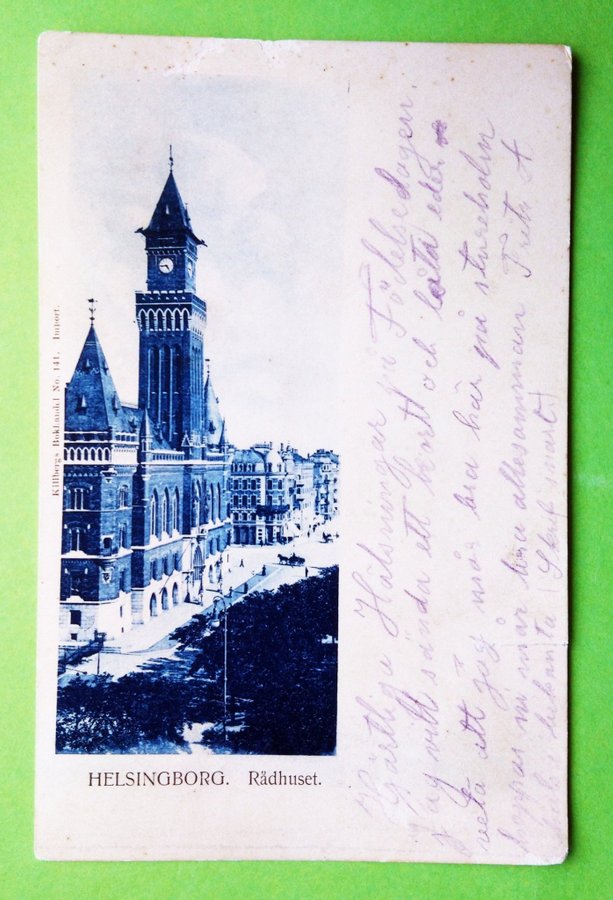 Killbergs Bokhandel No. 141. Import.
HELSINGBORG. Rådhuset.
Hjärtliga Hälsningar på Födelsedagen.
Jag vill sända ett kort och låta eder
veta att jag mår bra här på stureholm
hoppas ni mår bra allesamman
bekanta (Skrif snart)